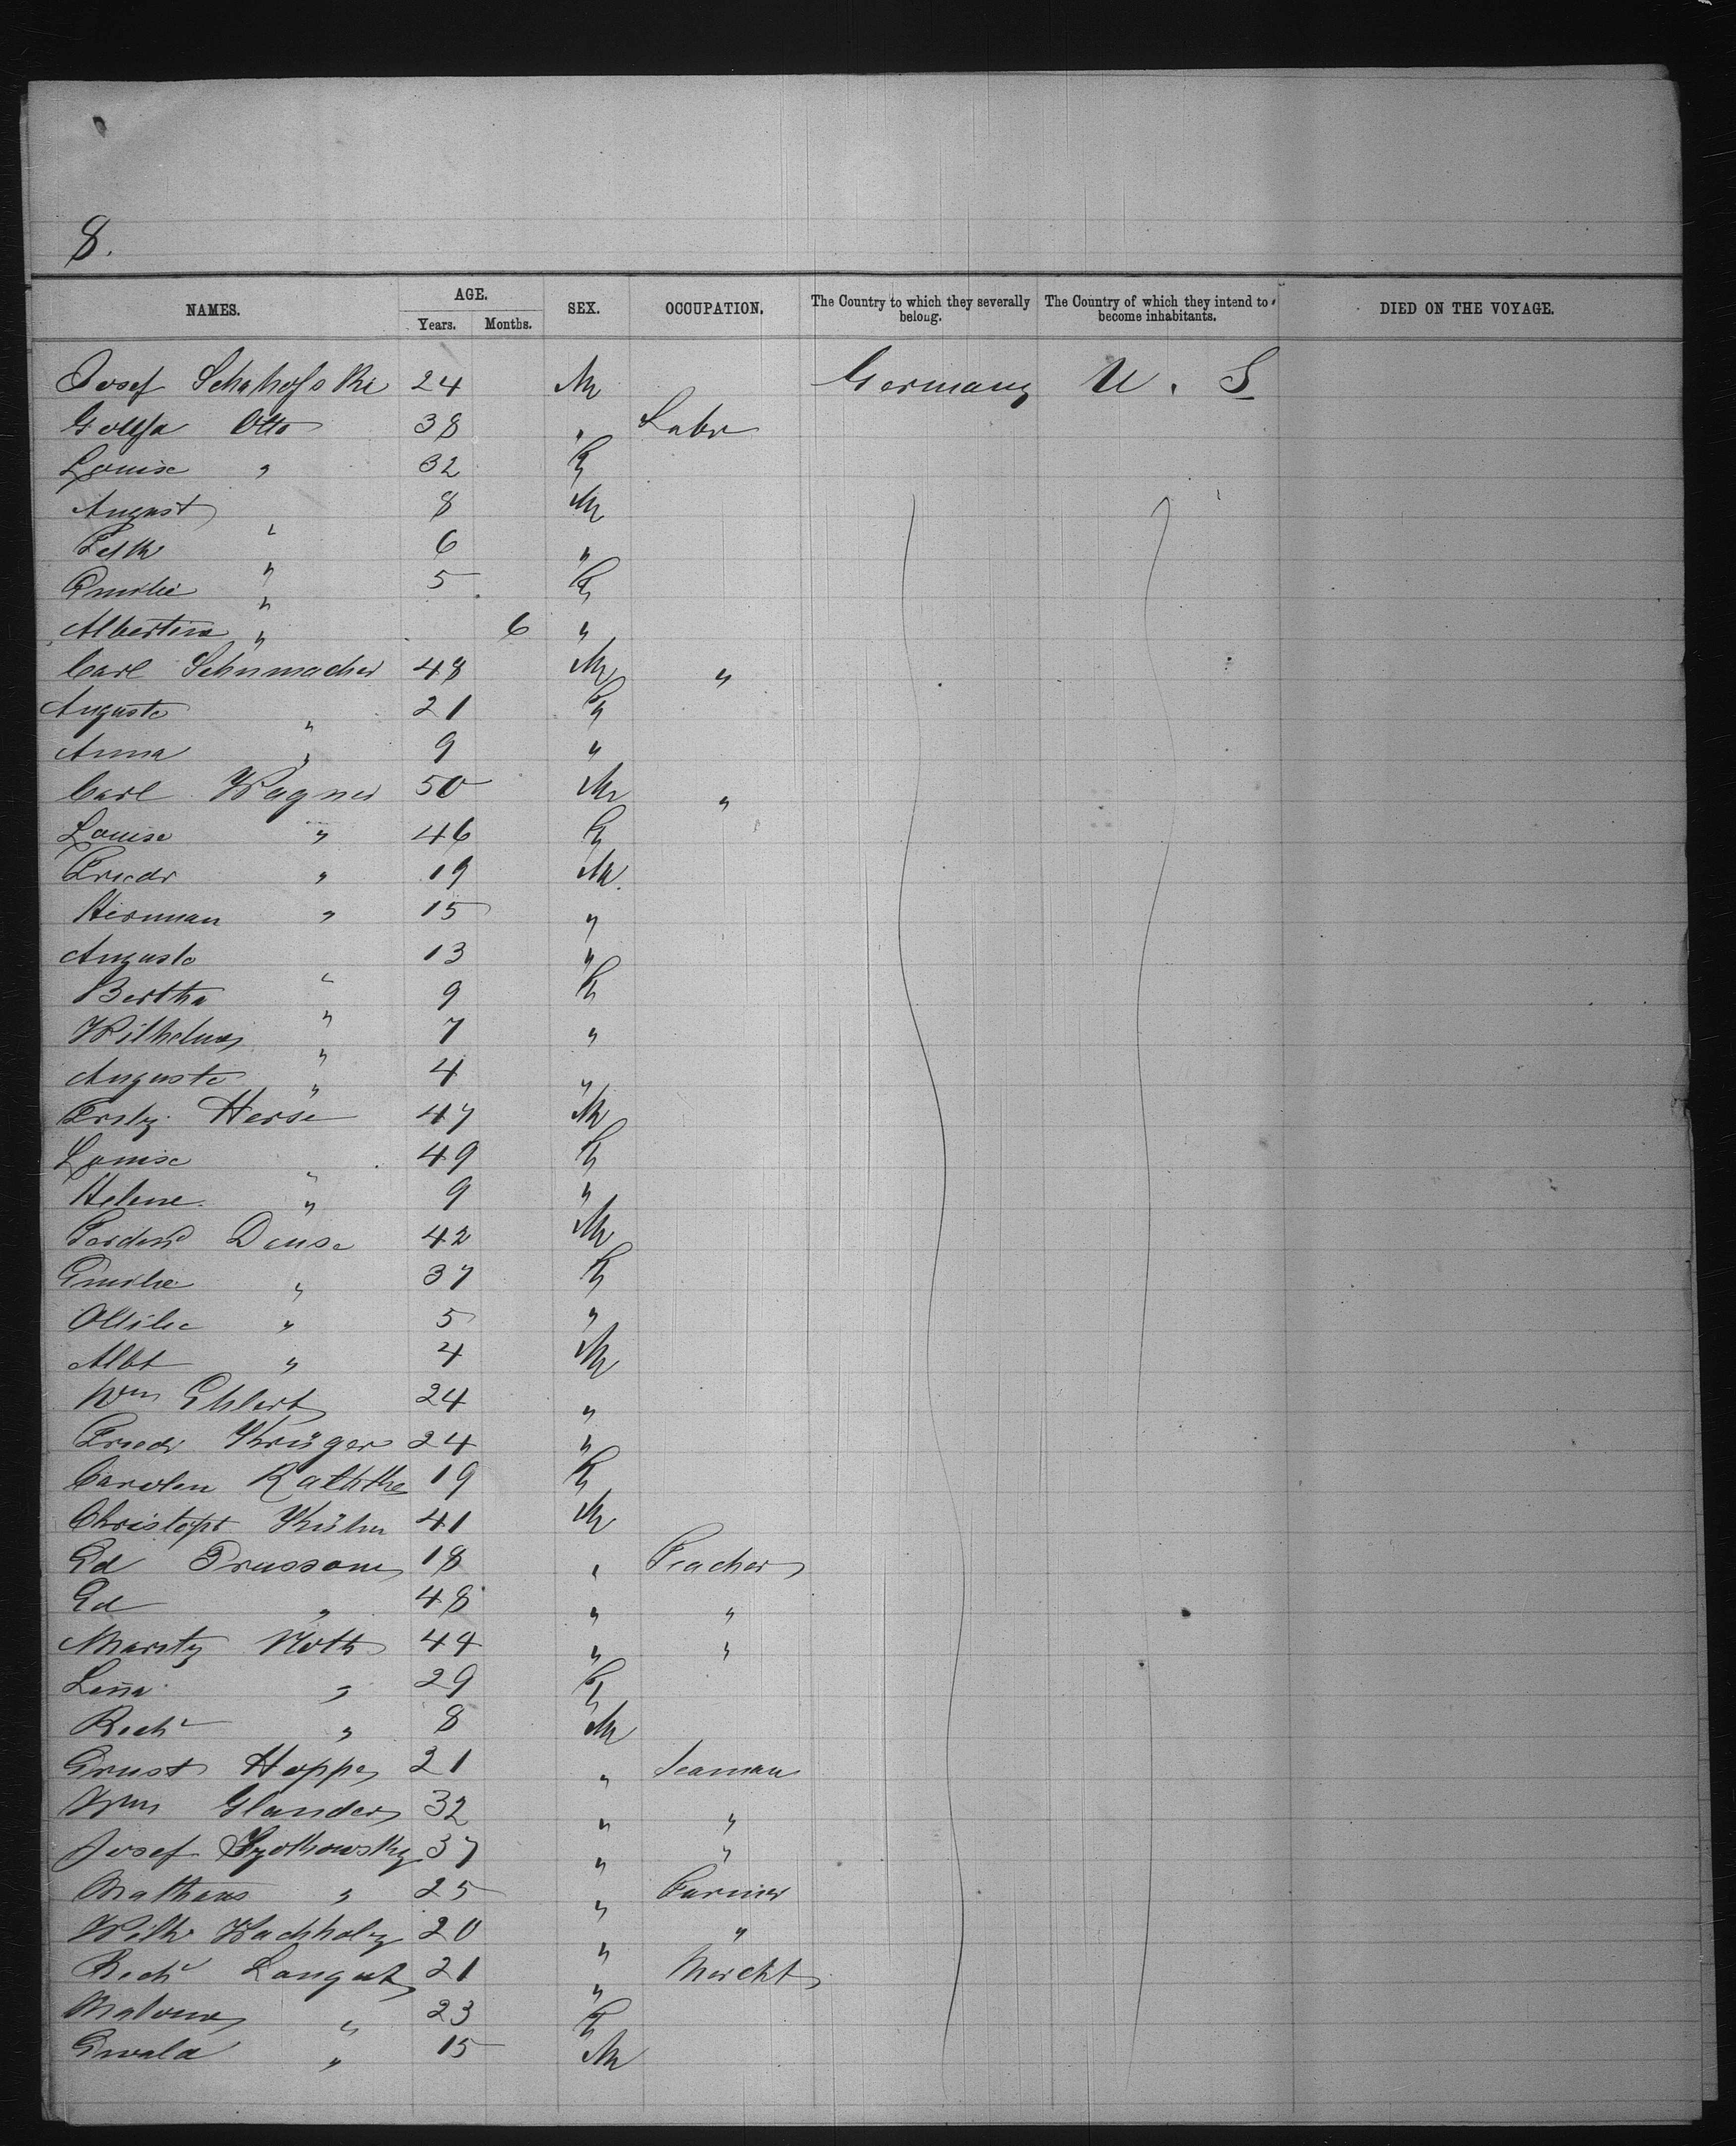 8.
NAMES. AGE. SEX. OCCUPATION. The Country to which they severally belong. The Country of which they intend to become inhabitants. DIED ON THE VOYAGE.
Years. Months.
Josef 24 M Germany U. S
Otto 38 " Labr
Louise " 32 F
August " 8 M
" 6 "
Emilie " 5 F
Albertine " 6 "
Carl Schumacher 48 M "
Auguste " 21 F
Anna " 9 "
Carl Wagner 50 M "
Louise " 46 F
Friedr " 19 M
Herman " 15 "
August " 13 "
Bertha " 9 F
Wilhelm " 7 "
Auguste " 4 "
Herse 47 M
Louise " 49 F
Helene " 9 "
Ferdind Dense 42 M
Emilie " 37 F
Ottilie " 5 "
Albt " 4 M
Wm Ehlert 24 "
Friedr Krüger 24 "
Carolin 19 F
Christoph Kühn 41 M
Ed 18 " Teacher
Ed " 48 " "
Moritz Noth 44 " "
Lena " 29 F
Richd " 8 M
Ernst Hoppe 21 " Seaman
Wm Glander 32 " "
Josef 37 " "
Mathaus " 25 " Farmer
Wilh Wachholz 20 " "
Richd Langut 21 " Mercht
" 23 F
Ewald " 15 M